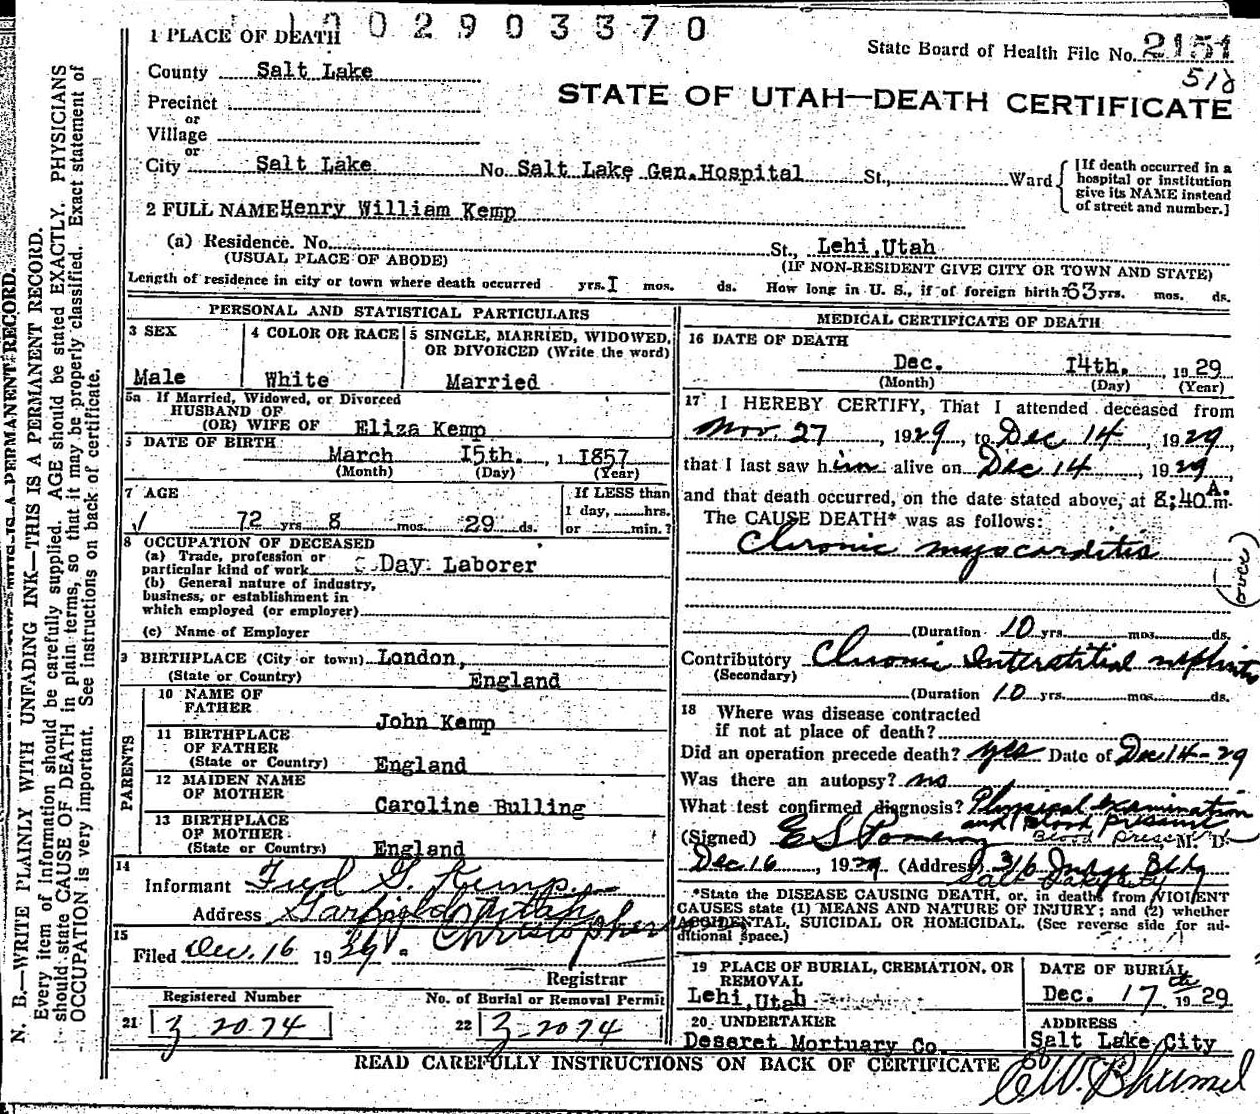 1 PLACE OF DEATH
0 0 2 9 0 3 3 7 0
State Board of Health File No. 2151
County Salt Lake
STATE OF UTAH—DEATH CERTIFICATE
Precinct
or
Village
or
City Salt Lake No. Salt Lake Gen. Hospital St., Ward
[If death occurred in a
hospital or institution
give its NAME instead
of street and number.]
2 FULL NAME Henry William Kemp
(a) Residence. No. St., Lehi, Utah
(USUAL PLACE OF ABODE) (IF NON-RESIDENT GIVE CITY OR TOWN AND STATE)
Length of residence in city or town where death occurred yrs. I mos. ds. How long in U. S., if of foreign birth? 63 yrs. mos. ds.
PERSONAL AND STATISTICAL PARTICULARS
3 SEX
Male
4 COLOR OR RACE
White
5 SINGLE, MARRIED, WIDOWED,
OR DIVORCED (Write the word)
Married
5a If Married, Widowed, or Divorced
HUSBAND OF
(OR) WIFE OF Eliza Kemp
6 DATE OF BIRTH
March 15th. , 1 1857
(Month) (Day) (Year)
7 AGE
72 yrs 8 mos. 29 ds.
If LESS than
1 day, hrs.
or min.?
8 OCCUPATION OF DECEASED
(a) Trade, profession or
particular kind of work Day Laborer
(b) General nature of industry,
business, or establishment in
which employed (or employer)
(c) Name of Employer
9 BIRTHPLACE (City or town) London,
(State or Country) England
PARENTS
10 NAME OF
FATHER
John Kemp
11 BIRTHPLACE
OF FATHER
(State or Country) England
12 MAIDEN NAME
OF MOTHER
Caroline Bulling
13 BIRTHPLACE
OF MOTHER
(State or Country) England
14
Informant Fred G. Kemp
Address Garfield Utah
15
Filed Dec. 16 1929
Registrar
Registered Number
21 3 2074
No. of Burial or Removal Permit
22 3-2074
MEDICAL CERTIFICATE OF DEATH
16 DATE OF DEATH
Dec. 14th. , 19 29
(Month) (Day) (Year)
17 I HEREBY CERTIFY, That I attended deceased from
Nov. 27 , 1929 , to Dec 14 , 1929,
that I last saw him alive on Dec 14 , 1929,
and that death occurred, on the date stated above, at 8;40 A. m.
The CAUSE DEATH* was as follows:
Chronic myocarditis
(over)
(Duration 10 yrs. mos. ds.
Contributory Chronic Interstitial nephritis
(Secondary)
(Duration 10 yrs. mos. ds.
18 Where was disease contracted
if not at place of death?
Did an operation precede death? yes Date of Dec 14-29
Was there an autopsy? no
What test confirmed diagnosis? Physical examination
and blood pressure
Blood pressure
(Signed) E S Pomeroy M. D.
Dec 16 , 1929 (Address) 316 Judge Bldg
Salt Lake City
*State the DISEASE CAUSING DEATH, or, in deaths from VIOLENT
CAUSES state (1) MEANS AND NATURE OF INJURY; and (2) whether
ACCIDENTAL, SUICIDAL OR HOMICIDAL. (See reverse side for ad-
ditional space.)
19 PLACE OF BURIAL, CREMATION, OR
REMOVAL
Lehi, Utah
DATE OF BURIAL
Dec. 17th 1929
20 UNDERTAKER
Deseret Mortuary Co.
ADDRESS
Salt Lake City
READ CAREFULLY INSTRUCTIONS ON BACK OF CERTIFICATE
N. B.—WRITE PLAINLY WITH UNFADING INK—THIS IS A PERMANENT RECORD.
Every item of information should be carefully supplied. AGE should be stated EXACTLY. PHYSICIANS
should state CAUSE OF DEATH in plain terms, so that it may be properly classified. Exact statement of
OCCUPATION is very important. See instructions on back of certificate.
A PERMANENT RECORD.